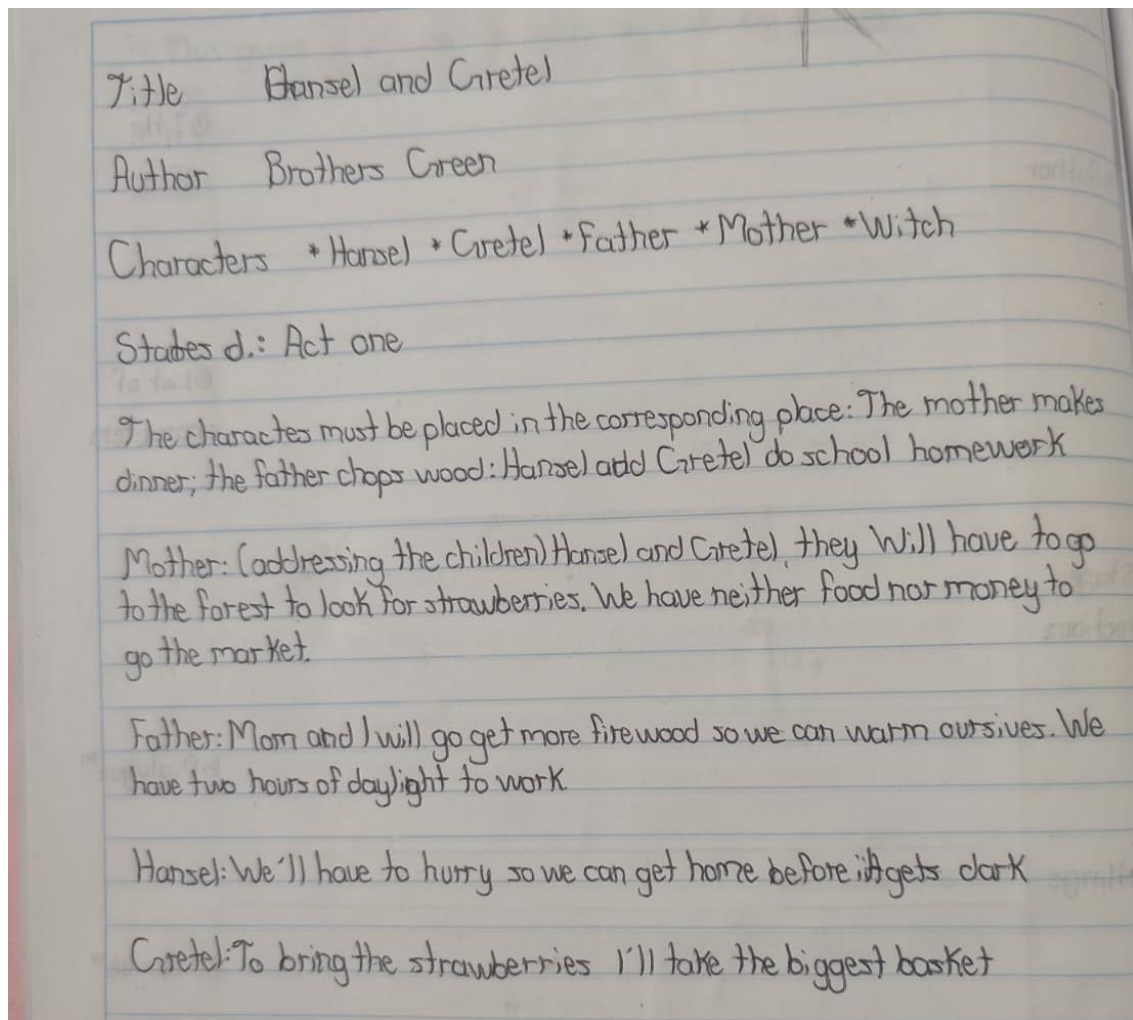 Title Hansel and Gretel
Author Brothers Green
Characters * Hansel * Gretel * Father * Mother * Witch
States d.: Act one
The charactes must be placed in the corresponding place: The mother makes
dinner; the father chops wood: Hansel add Gretel do school homework
Mother: (addressing the children) Hansel and Gretel, they Will have to go
to the forest to look for strawberries. We have neither food nor money to
go the market.
Father: Mom and I will go get more firewood so we can warm oursives. We
have two hours of daylight to work.
Hansel: We'll have to hurry so we can get home before it gets dark
Gretel: To bring the strawberries I'll take the biggest basket